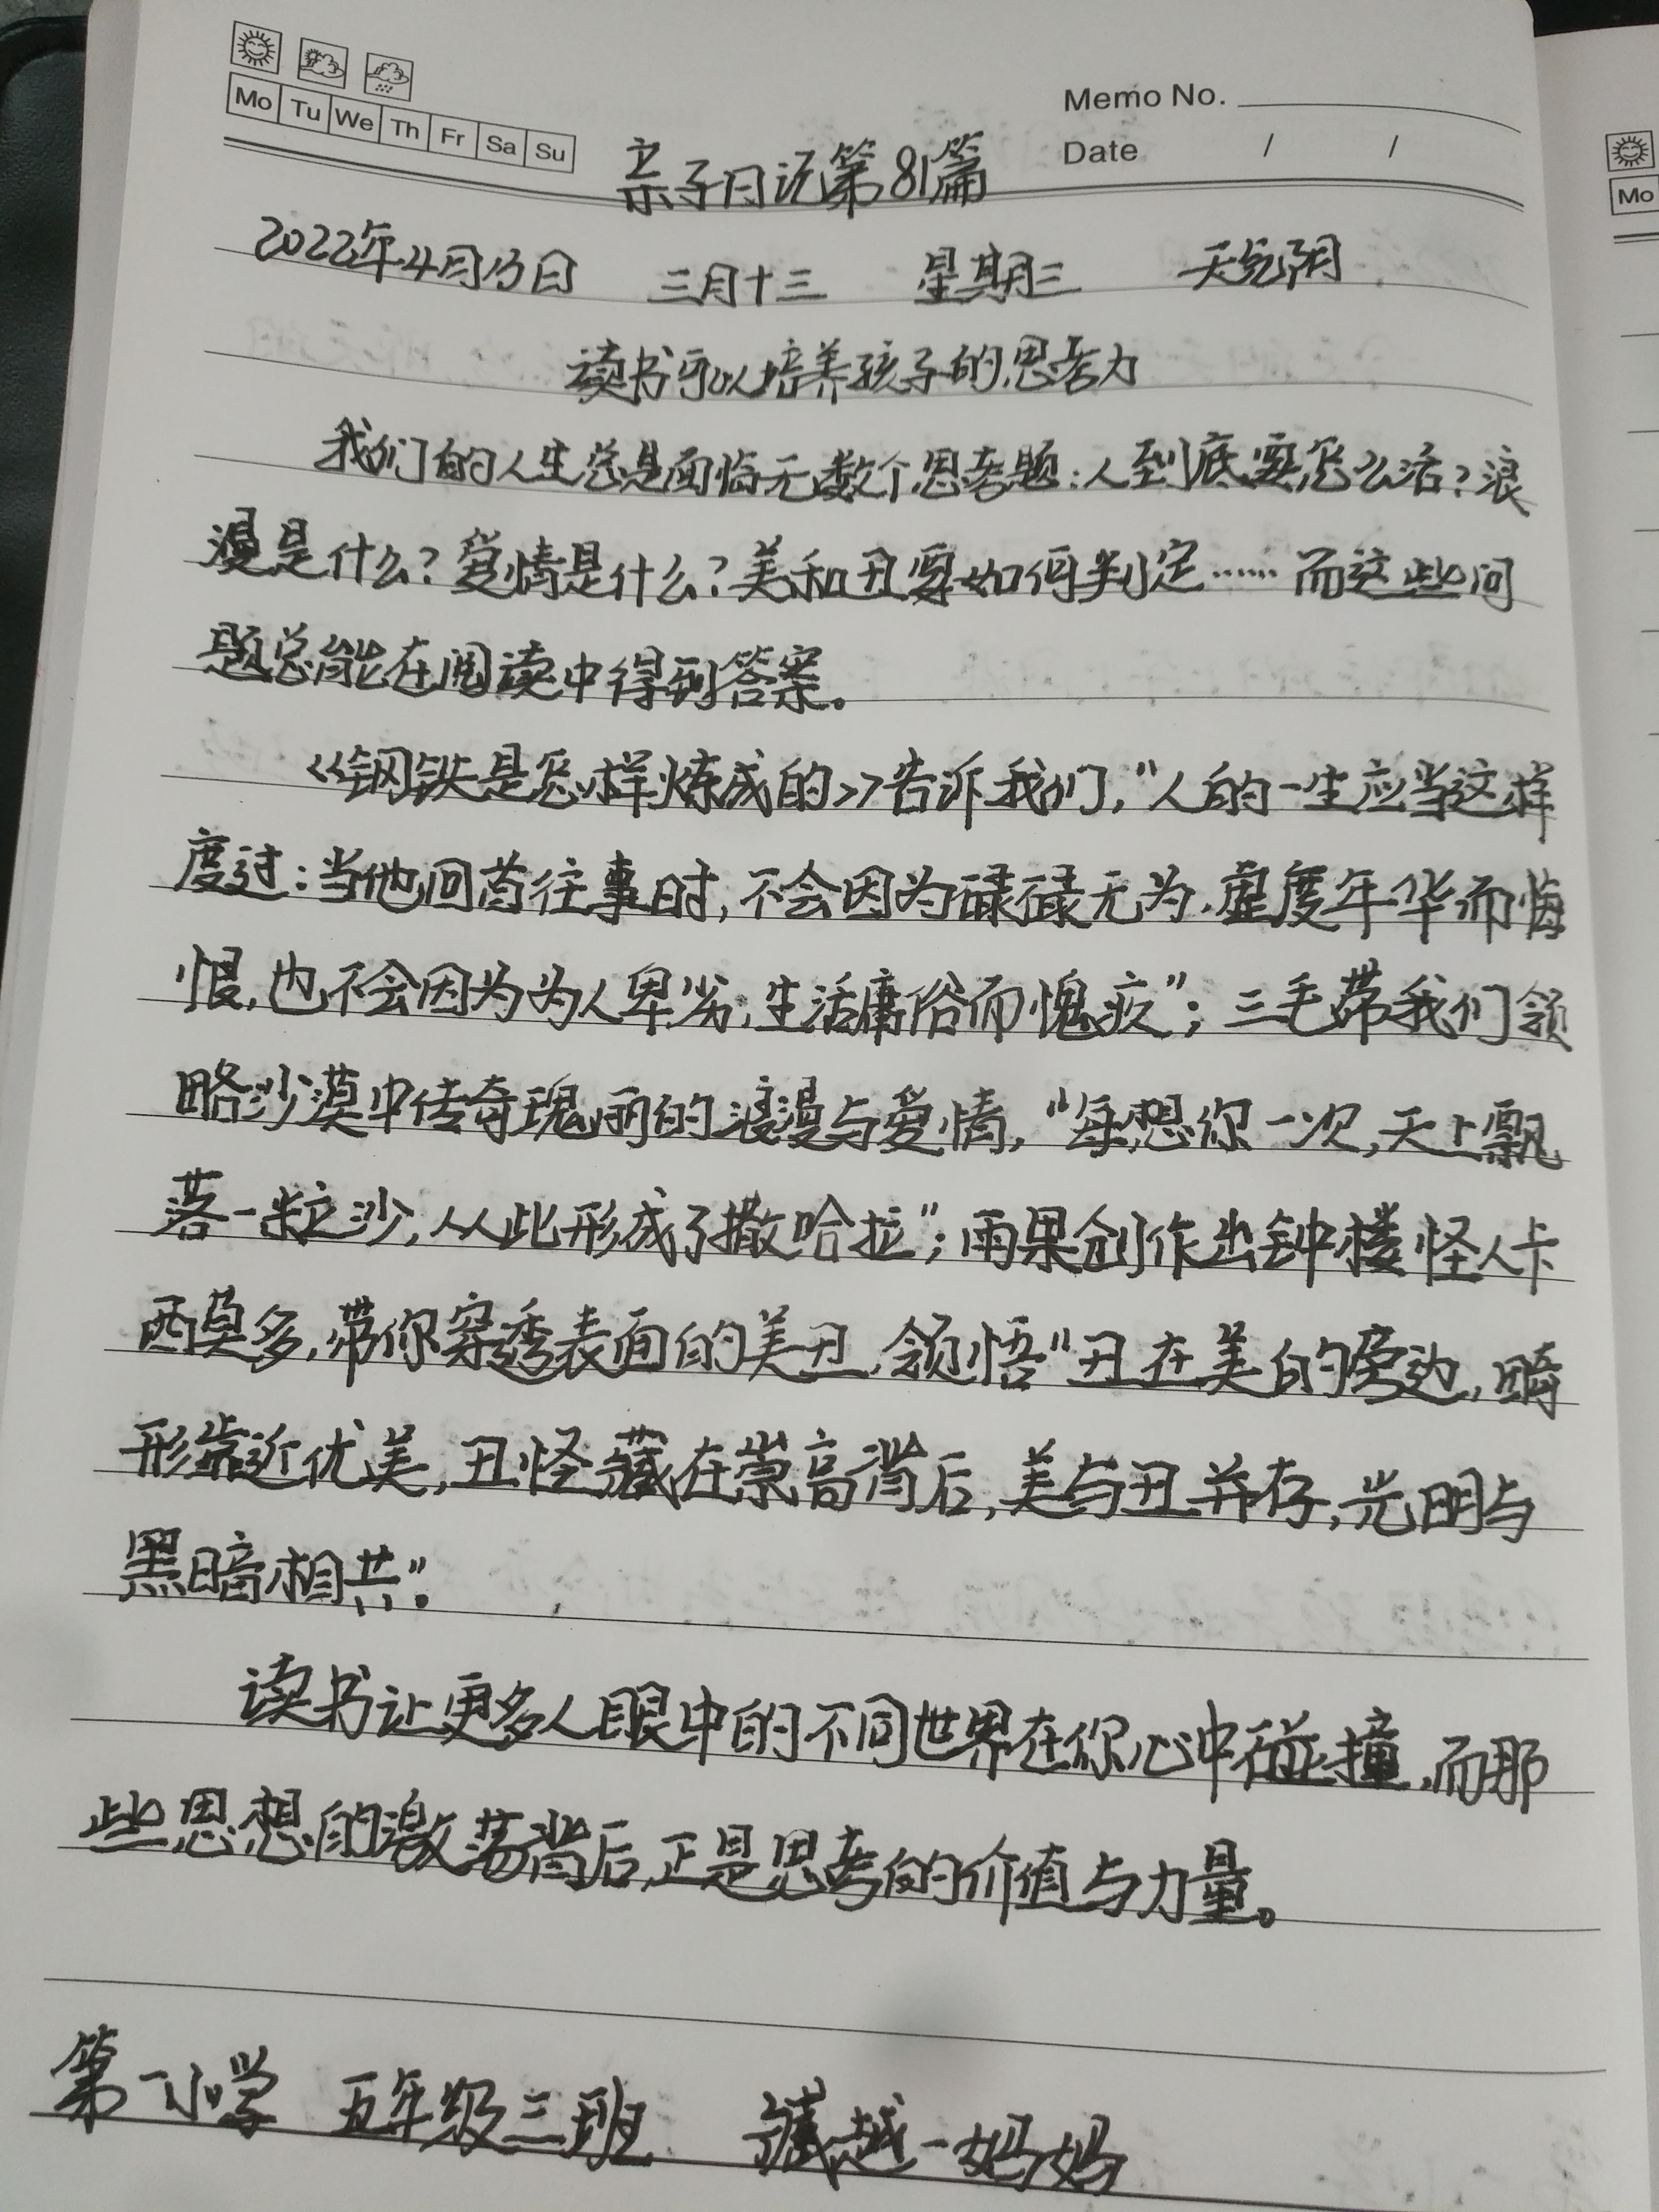 Mo Tu We Th Fr Sa Su
Memo No.
Date / /
亲子日记第81篇
2022年4月13日 三月十三 星期三 天气阴
读书可以培养孩子的思考力
我们的人生总是面临无数个思考题:人到底要怎么活?浪
漫是什么?爱情是什么?美和丑要如何判定……而这些问
题总能在阅读中得到答案。
《钢铁是怎样炼成的》告诉我们,“人的一生应当这样
度过:当他回首往事时,不会因为碌碌无为、虚度年华而悔
恨,也不会因为为人卑劣、生活庸俗而愧疚”;三毛带我们领
略沙漠中传奇瑰丽的浪漫与爱情,“每想你一次,天上飘
落一粒沙,从此形成了撒哈拉”;雨果创作出钟楼怪人卡
西莫多,带你穿透表面的美丑,领悟“丑在美的旁边,畸
形靠近优美,丑怪藏在崇高背后,美与丑并存,光明与
黑暗相共”。
读书让更多人眼中的不同世界在你心中碰撞,而那
些思想的激荡背后,正是思考的价值与力量。
第一小学 五年级三班 臧越一妈妈
Mo